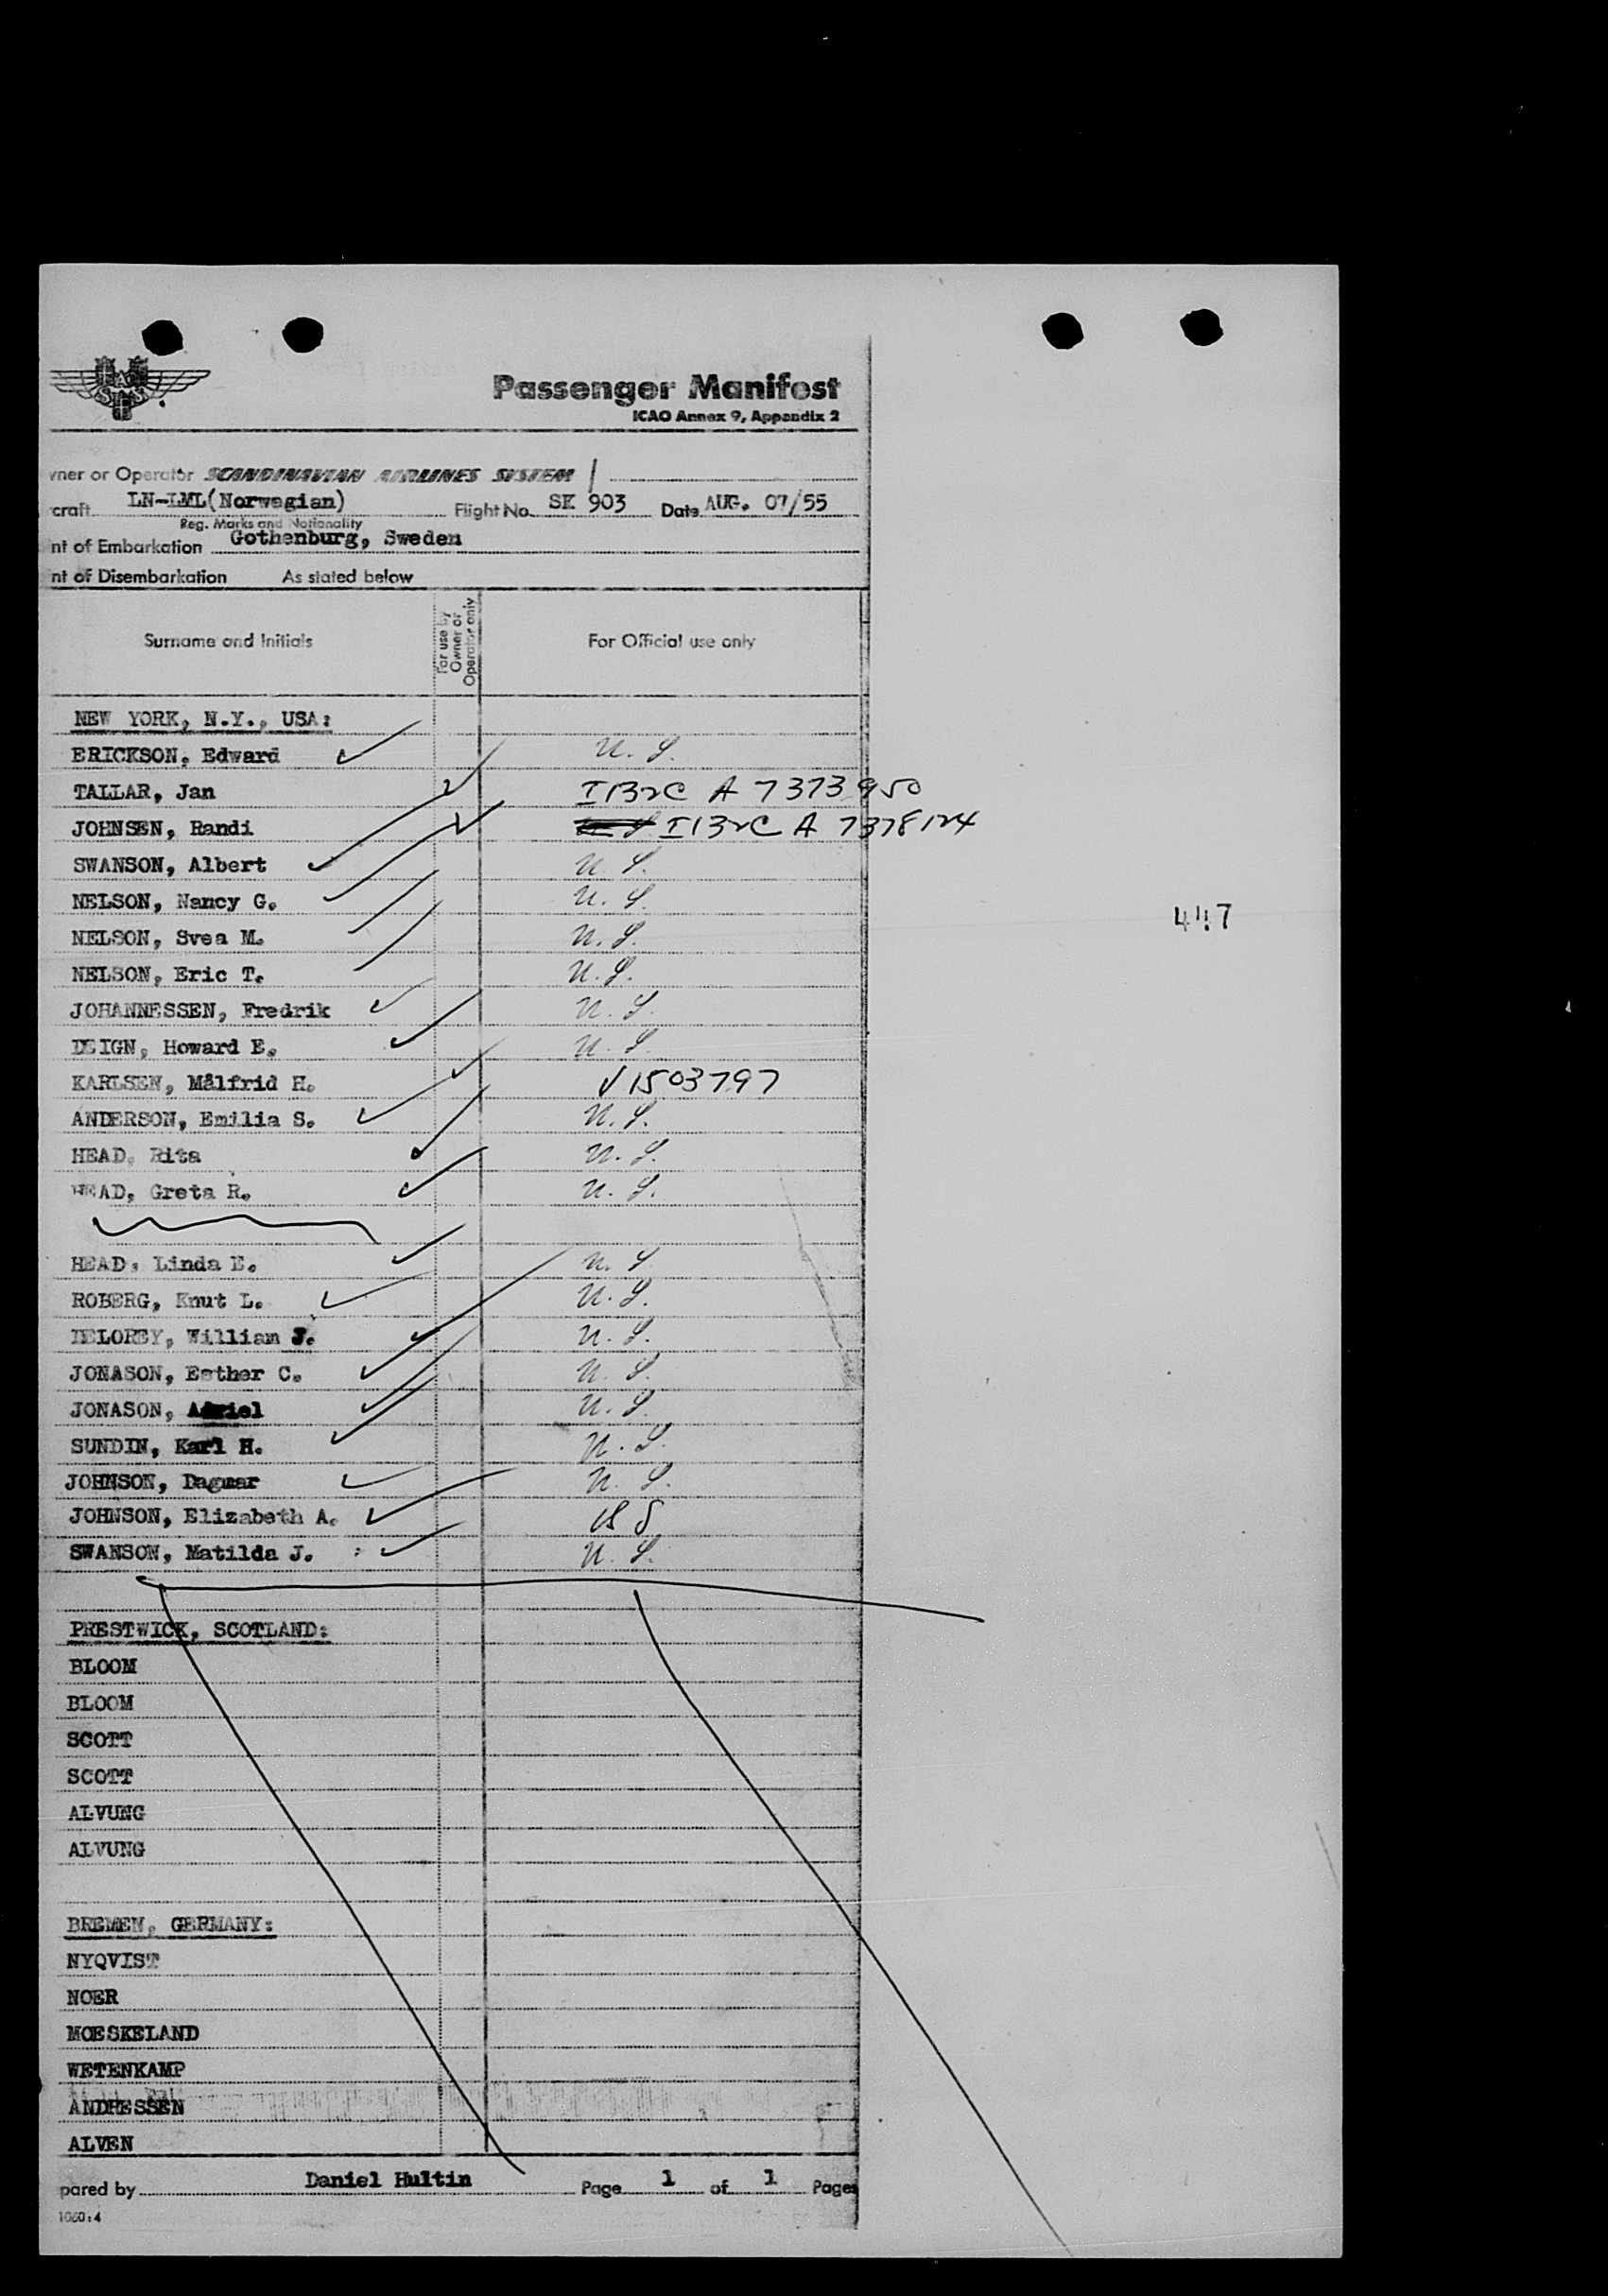 SAS
Passenger Manifest
ICAO Annex 9, Appendix 2
wner or Operator SCANDINAVIAN AIRLINES SYSTEM
craft LN-LML(Norwegian) Flight No. SK 903 Date AUG. 07/55
Reg. Marks and Nationality
nt of Embarkation Gothenburg, Sweden
nt of Disembarkation As stated below
Surname and Initials For use by Owner or Operator only For Official use only
NEW YORK, N.Y., USA:
ERICKSON, Edward U. S.
TALLAR, Jan I132C A 7373950
JOHNSEN, Randi I132C A 7378124
SWANSON, Albert U. S.
NELSON, Nancy G. U. S.
NELSON, Svea M. U. S.
NELSON, Eric T. U. S.
JOHANNESSEN, Fredrik U. S.
DEIGN, Howard E. U. S.
KARLSEN, Målfrid H. V1503797
ANDERSON, Emilia S. U. S.
HEAD, Rita U. S.
HEAD, Greta R. U. S.
HEAD, Linda E. U. S.
ROBERG, Knut L. U. S.
DELOREY, William J. U. S.
JONASON, Esther C. U. S.
JONASON, U. S.
SUNDIN, Karl H. U. S.
JOHNSON, Dagmar U. S.
JOHNSON, Elizabeth A. US
SWANSON, Matilda J. U. S.
447
PRESTWICK, SCOTLAND:
BLOOM
BLOOM
SCOTT
SCOTT
ALVUNG
ALVUNG
BREMEN, GERMANY:
NYQVIST
NOER
MOESKELAND
WETENKAMP
ANDRESSEN
ALVEN
pared by Daniel Hultin Page 1 of 1 Pages
1060:4